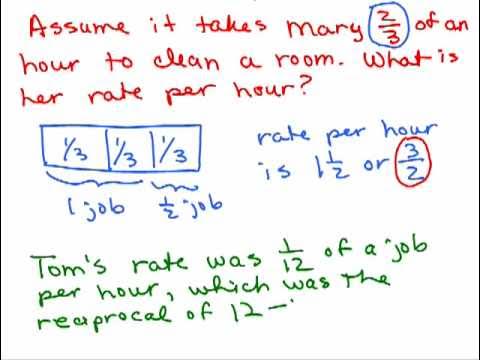 Assume it takes Mary 2/3 of an
hour to clean a room. What is
her rate per hour?
1/3 1/3 1/3
1 job 1/2 job
rate per hour
is 1 1/2 or 3/2
Tom's rate was 1/12 of a job
per hour, which was the
reciprocal of 12 –